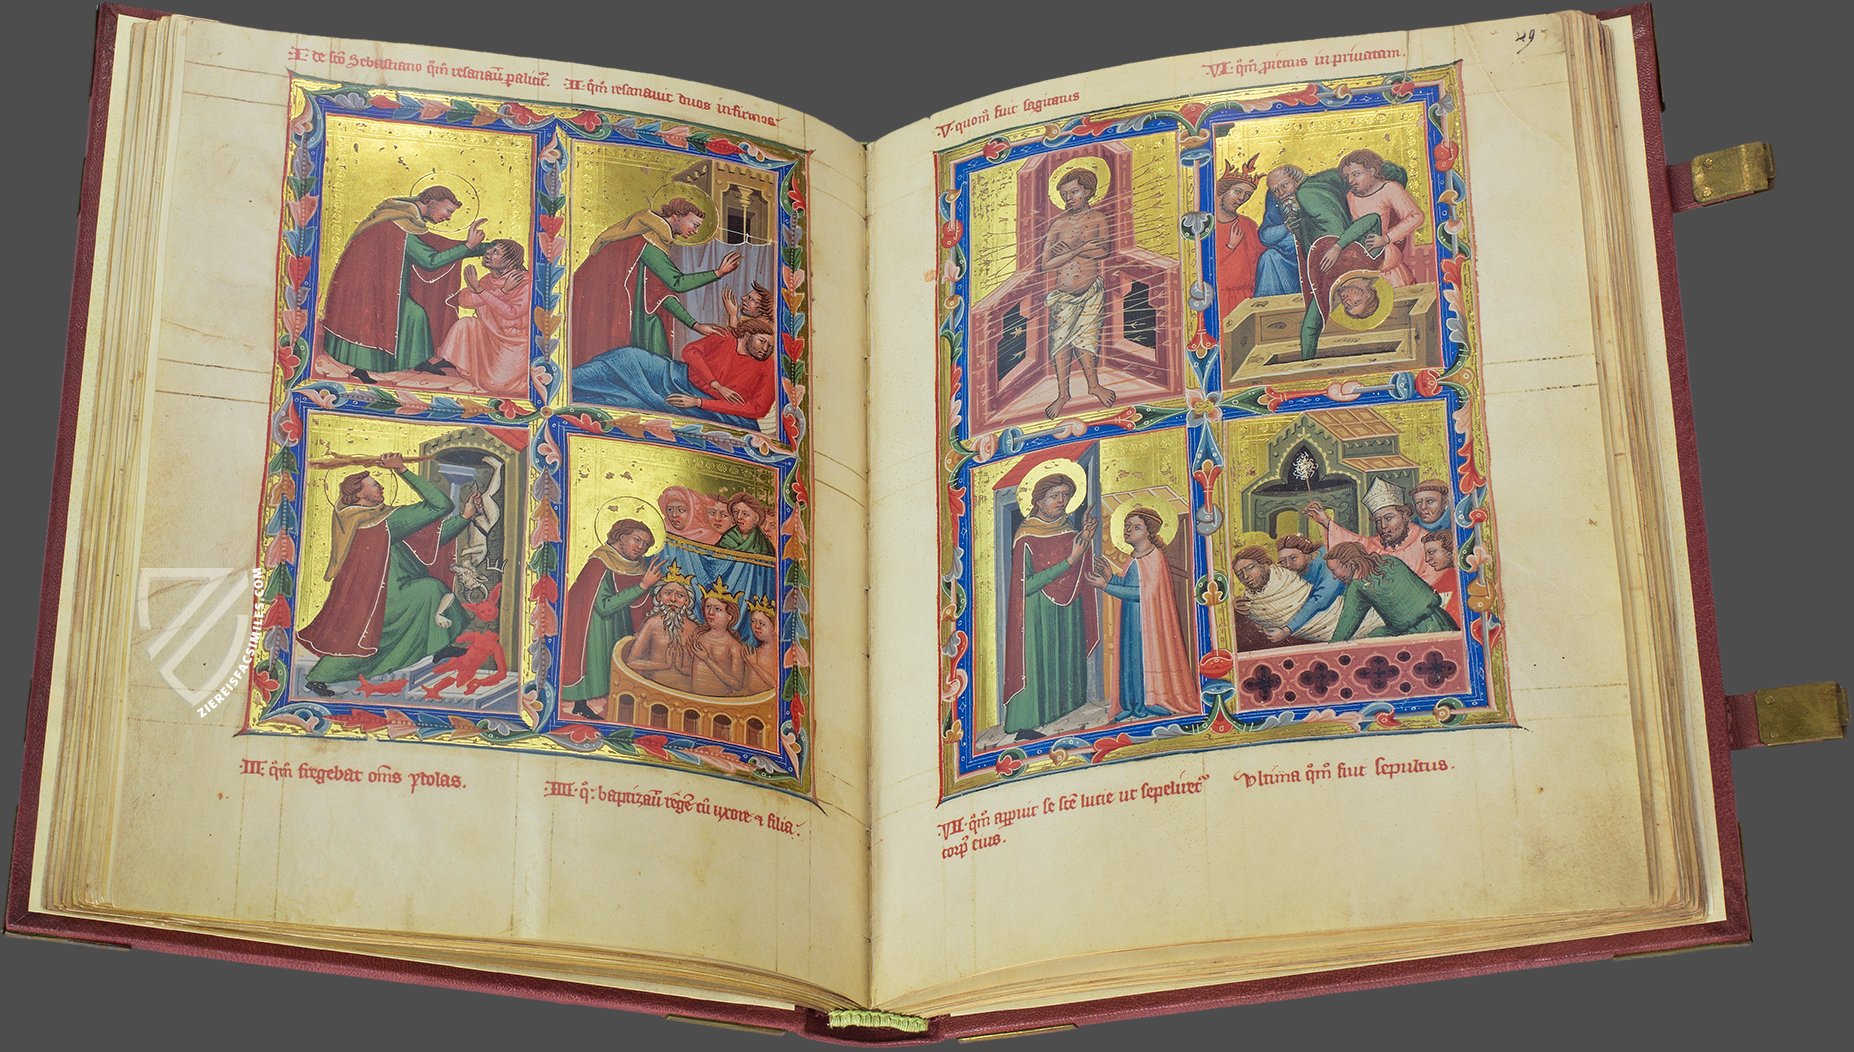 .I. de sc̄o Sebastiano qm̄ resanau̅ palitic̅.
.II. qm̄ resanauit duos infirmos.
.III. qm̄ frēgebat om̄s ydolas.
.IIII. q̄. baptizau̅ rēgē cū uxore ⁊ filia.
V. quom̄ fuit sagitatus
VI. qm̄ piectus in priuatam.
49
.VII. qm̄o apparuit se sc̄e lucie ut sepeliret
corp̄ eius.
Vltima qm̄o fuit sepultus.
ZIEREISFACSIMILES.COM